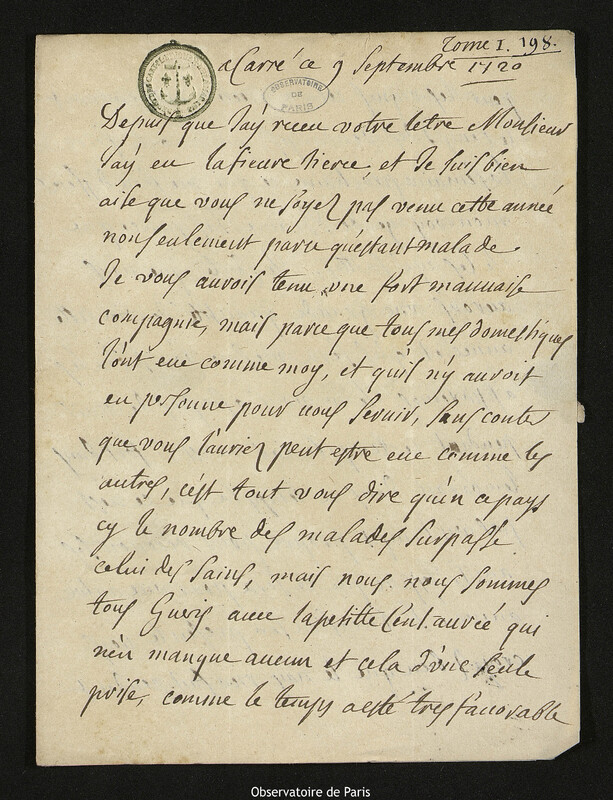 Tome I. 198.
a Carré ce 9 Septembre 1720
OBSERVATOIRE
DE
PARIS
Depuis que Jay receu votre letre Monsieur
Jay eu la fieure tierce, et Je suis bien
aise que vous ne soyez pas venu cette année
non seulement parce qu'estant malade
Je vous aurois tenu une fort mauuaise
compagnie, mais parce que tous mes domestiques
l'ont eue comme moy, et qu'il n'y auroit
eu personne pour nous seruir, sans conter
que vous l'auriez peut estre eue comme les
autres, c'est tout vous dire qu'en ce pays
cy le nombre des malades surpasse
celui des sains, mais nous nous sommes
tous Gueris auec la petitte Centaureé qui
n'en manque aucun et cela d'une seule
prise, comme le temps a esté tres fauorable
Observatoire de Paris